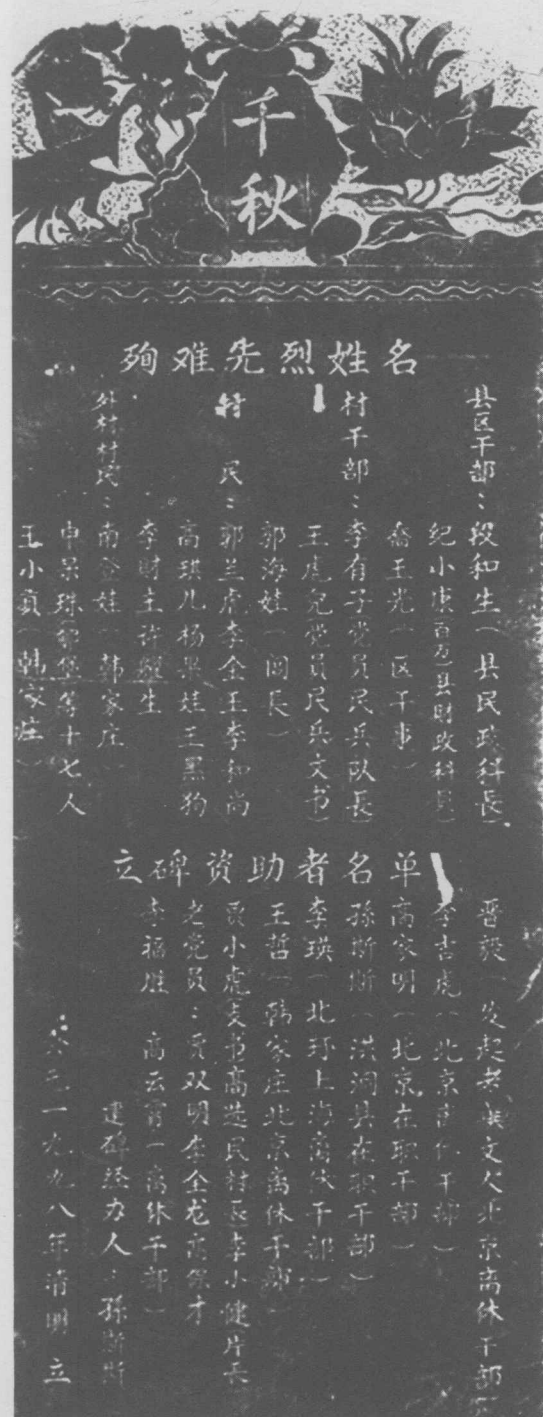 千秋
殉难先烈姓名
县区干部：段和生（县民政科長）
纪小康（百万）县财政科员）
乔玉光（区干事）
村干部：李有子党员民兵队長）
王虎兒党员民兵文书）
郭海娃（闾長）
村民：郭兰虎李全王李和尚
高琪儿杨果娃王黑狗
李财主许耀生
外村村民：南金娃（韩家庄）
申景珠等十七人
王小货（韩家庄）
立碑资助者名单
晋毅（发起者撰文人北京离休干部）
李吉虎（北京离休干部）
高家明（北京在职干部）
孫斯斯（洪洞县在职干部）
李瑛（北环上海离休干部）
王哲（韩家庄北京离休干部）
贾小虎支书高选民村長李小健片長
老党员：贾双明李全龙高保才
李福胜 高云霄（离休干部）
建碑经力人：孫斯斯
公元一九九八年清明立